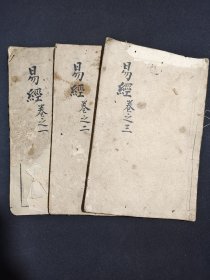 易經卷之一
易經卷之二
易經卷之三